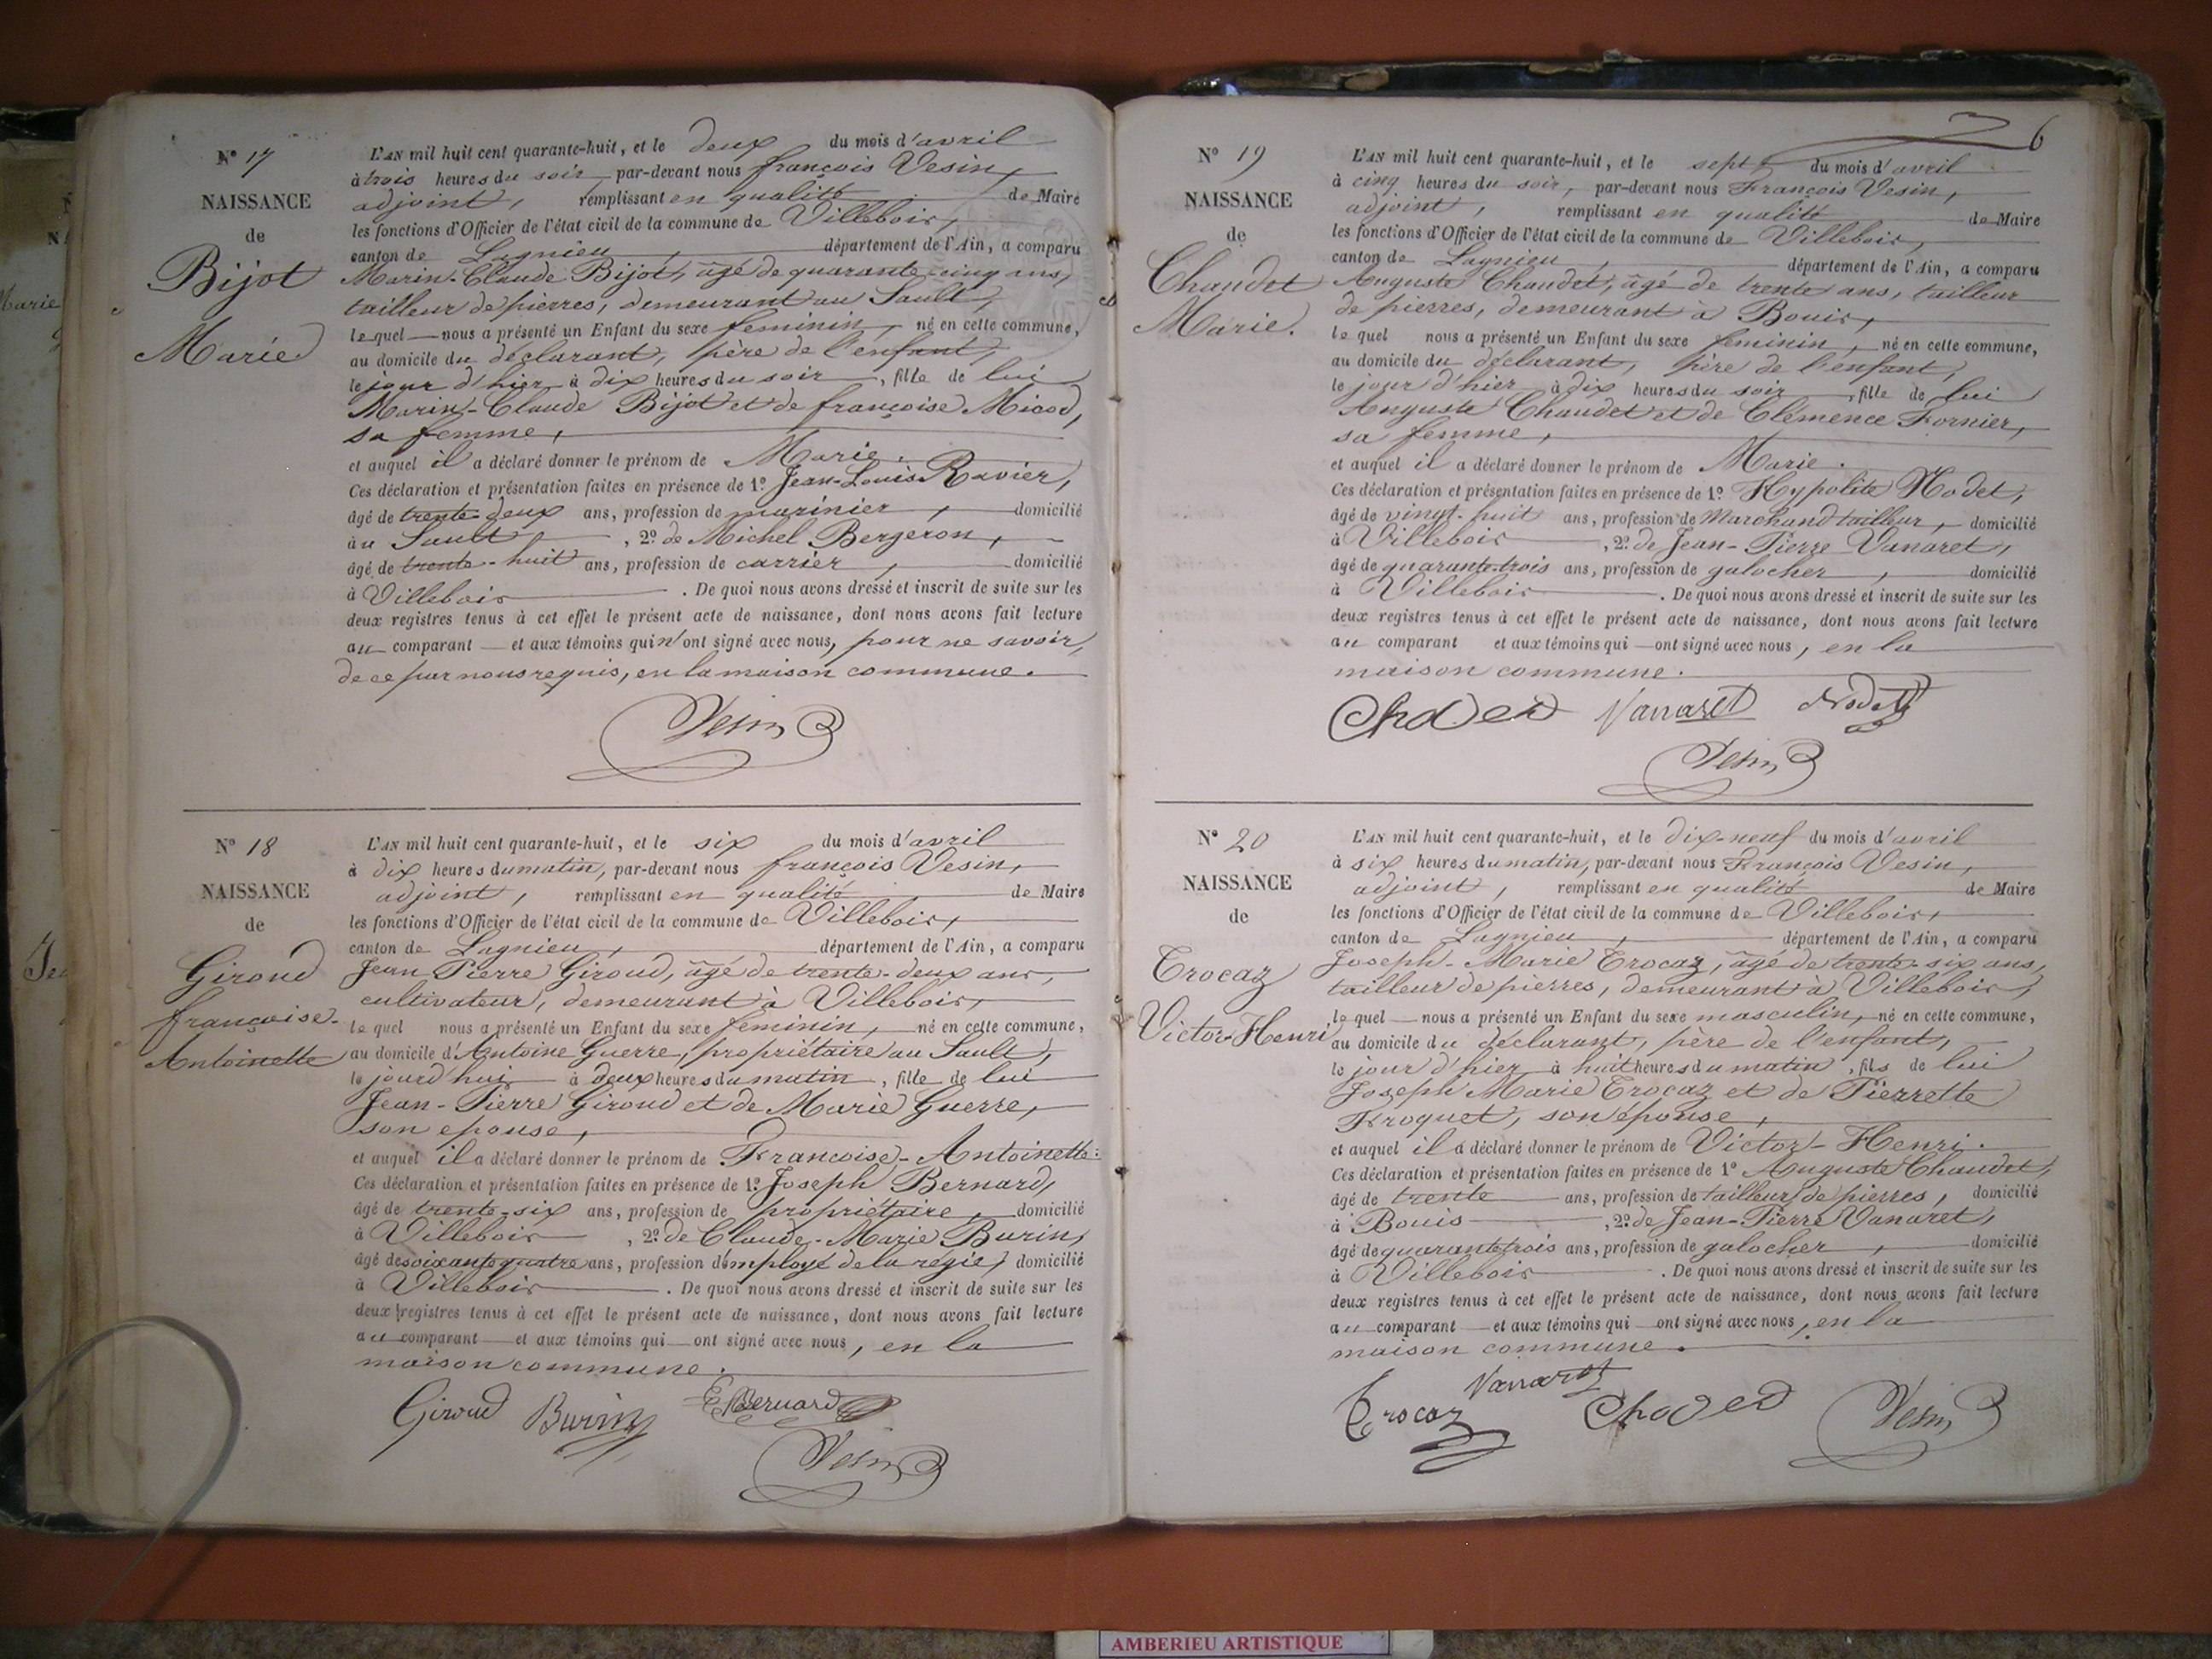 Nº 17
NAISSANCE
de
Bijot
Marie
L'AN mil huit cent quarante-huit, et le deux du mois d'avril
à trois heures du soir, par-devant nous françois Vesin,
adjoint, remplissant en qualité de Maire
les fonctions d'Officier de l'état civil de la commune de Villebois,
canton de Lagnieu, département de l'Ain, a comparu
Marin-Claude Bijot, âgé de quarante-cinq ans,
tailleur de pierres, demeurant au Sault,
lequel nous a présenté un Enfant du sexe feminin, né en cette commune,
au domicile du déclarant, père de l'enfant,
le jour d'hier à dix heures du soir, fille de lui
Marin-Claude Bijot et de françoise Micod,
sa femme,
et auquel il a déclaré donner le prénom de Marie.
Ces déclaration et présentation faites en présence de 1º Jean-Louis Ravier,
âgé de trente-deux ans, profession de marinier, domicilié
au Sault, 2º de Michel Bergeron,
âgé de trente-huit ans, profession de carrier, domicilié
à Villebois. De quoi nous avons dressé et inscrit de suite sur les
deux registres tenus à cet effet le présent acte de naissance, dont nous avons fait lecture
au comparant et aux témoins qui n'ont signé avec nous, pour ne savoir,
de ce par nous requis, en la maison commune.
Vesin
Nº 18
NAISSANCE
de
Giroud
françoise-
Antoinette
L'AN mil huit cent quarante-huit, et le six du mois d'avril
à dix heures du matin, par-devant nous françois Vesin,
adjoint, remplissant en qualité de Maire
les fonctions d'Officier de l'état civil de la commune de Villebois,
canton de Lagnieu, département de l'Ain, a comparu
Jean-Pierre Giroud, âgé de trente-deux ans,
cultivateur, demeurant à Villebois,
lequel nous a présenté un Enfant du sexe feminin, né en cette commune,
au domicile d'Antoine Guerre, propriétaire au Sault,
le jourd'hui à deux heures du matin, fille de lui
Jean-Pierre Giroud et de Marie Guerre,
son epouse,
et auquel il a déclaré donner le prénom de Françoise-Antoinette.
Ces déclaration et présentation faites en présence de 1º Joseph Bernard,
âgé de trente-six ans, profession de propriétaire, domicilié
à Villebois, 2º de Claude-Marie Burin,
âgé de soixante quatre ans, profession d'employé de la régie, domicilié
à Villebois. De quoi nous avons dressé et inscrit de suite sur les
deux registres tenus à cet effet le présent acte de naissance, dont nous avons fait lecture
au comparant et aux témoins qui ont signé avec nous, en la
maison commune.
Giroud Burin Bernard
Vesin
6
Nº 19
NAISSANCE
de
Chaudet
Marie.
L'AN mil huit cent quarante-huit, et le sept du mois d'avril
à cinq heures du soir, par-devant nous François Vesin,
adjoint, remplissant en qualité de Maire
les fonctions d'Officier de l'état civil de la commune de Villebois,
canton de Lagnieu, département de l'Ain, a comparu
Auguste Chaudet, âgé de trente ans, tailleur
de pierres, demeurant à Bouis,
lequel nous a présenté un Enfant du sexe feminin, né en cette commune,
au domicile du déclarant, père de l'enfant,
le jour d'hier à dix heures du soir, fille de lui
Auguste Chaudet et de Clémence Fornier,
sa femme,
et auquel il a déclaré donner le prénom de Marie.
Ces déclaration et présentation faites en présence de 1º Hypolite Nodet,
âgé de vingt-huit ans, profession de Marchand tailleur, domicilié
à Villebois, 2º de Jean-Pierre Vanaret,
âgé de quarante-trois ans, profession de galocher, domicilié
à Villebois. De quoi nous avons dressé et inscrit de suite sur les
deux registres tenus à cet effet le présent acte de naissance, dont nous avons fait lecture
au comparant et aux témoins qui ont signé avec nous, en la
maison commune.
Vanaret Nodet
Vesin
Nº 20
NAISSANCE
de
Trocaz
Victor-Henri
L'AN mil huit cent quarante-huit, et le dix-neuf du mois d'avril
à six heures du matin, par-devant nous François Vesin,
adjoint, remplissant en qualité de Maire
les fonctions d'Officier de l'état civil de la commune de Villebois,
canton de Lagnieu, département de l'Ain, a comparu
Joseph-Marie Trocaz, âgé de trente-six ans,
tailleur de pierres, demeurant à Villebois,
lequel nous a présenté un Enfant du sexe masculin, né en cette commune,
au domicile du déclarant, père de l'enfant,
le jour d'hier à huit heures du matin, fils de lui
Joseph Marie Trocaz et de Pierrette
Froquet, son épouse,
et auquel il a déclaré donner le prénom de Victor-Henri.
Ces déclaration et présentation faites en présence de 1º Auguste Chaudet,
âgé de trente ans, profession de tailleur de pierres, domicilié
à Bouis, 2º de Jean-Pierre Vanaret,
âgé de quarante trois ans, profession de galocher, domicilié
à Villebois. De quoi nous avons dressé et inscrit de suite sur les
deux registres tenus à cet effet le présent acte de naissance, dont nous avons fait lecture
au comparant et aux témoins qui ont signé avec nous, en la
maison commune.
Vanaret
Trocaz Vesin
AMBERIEU ARTISTIQUE